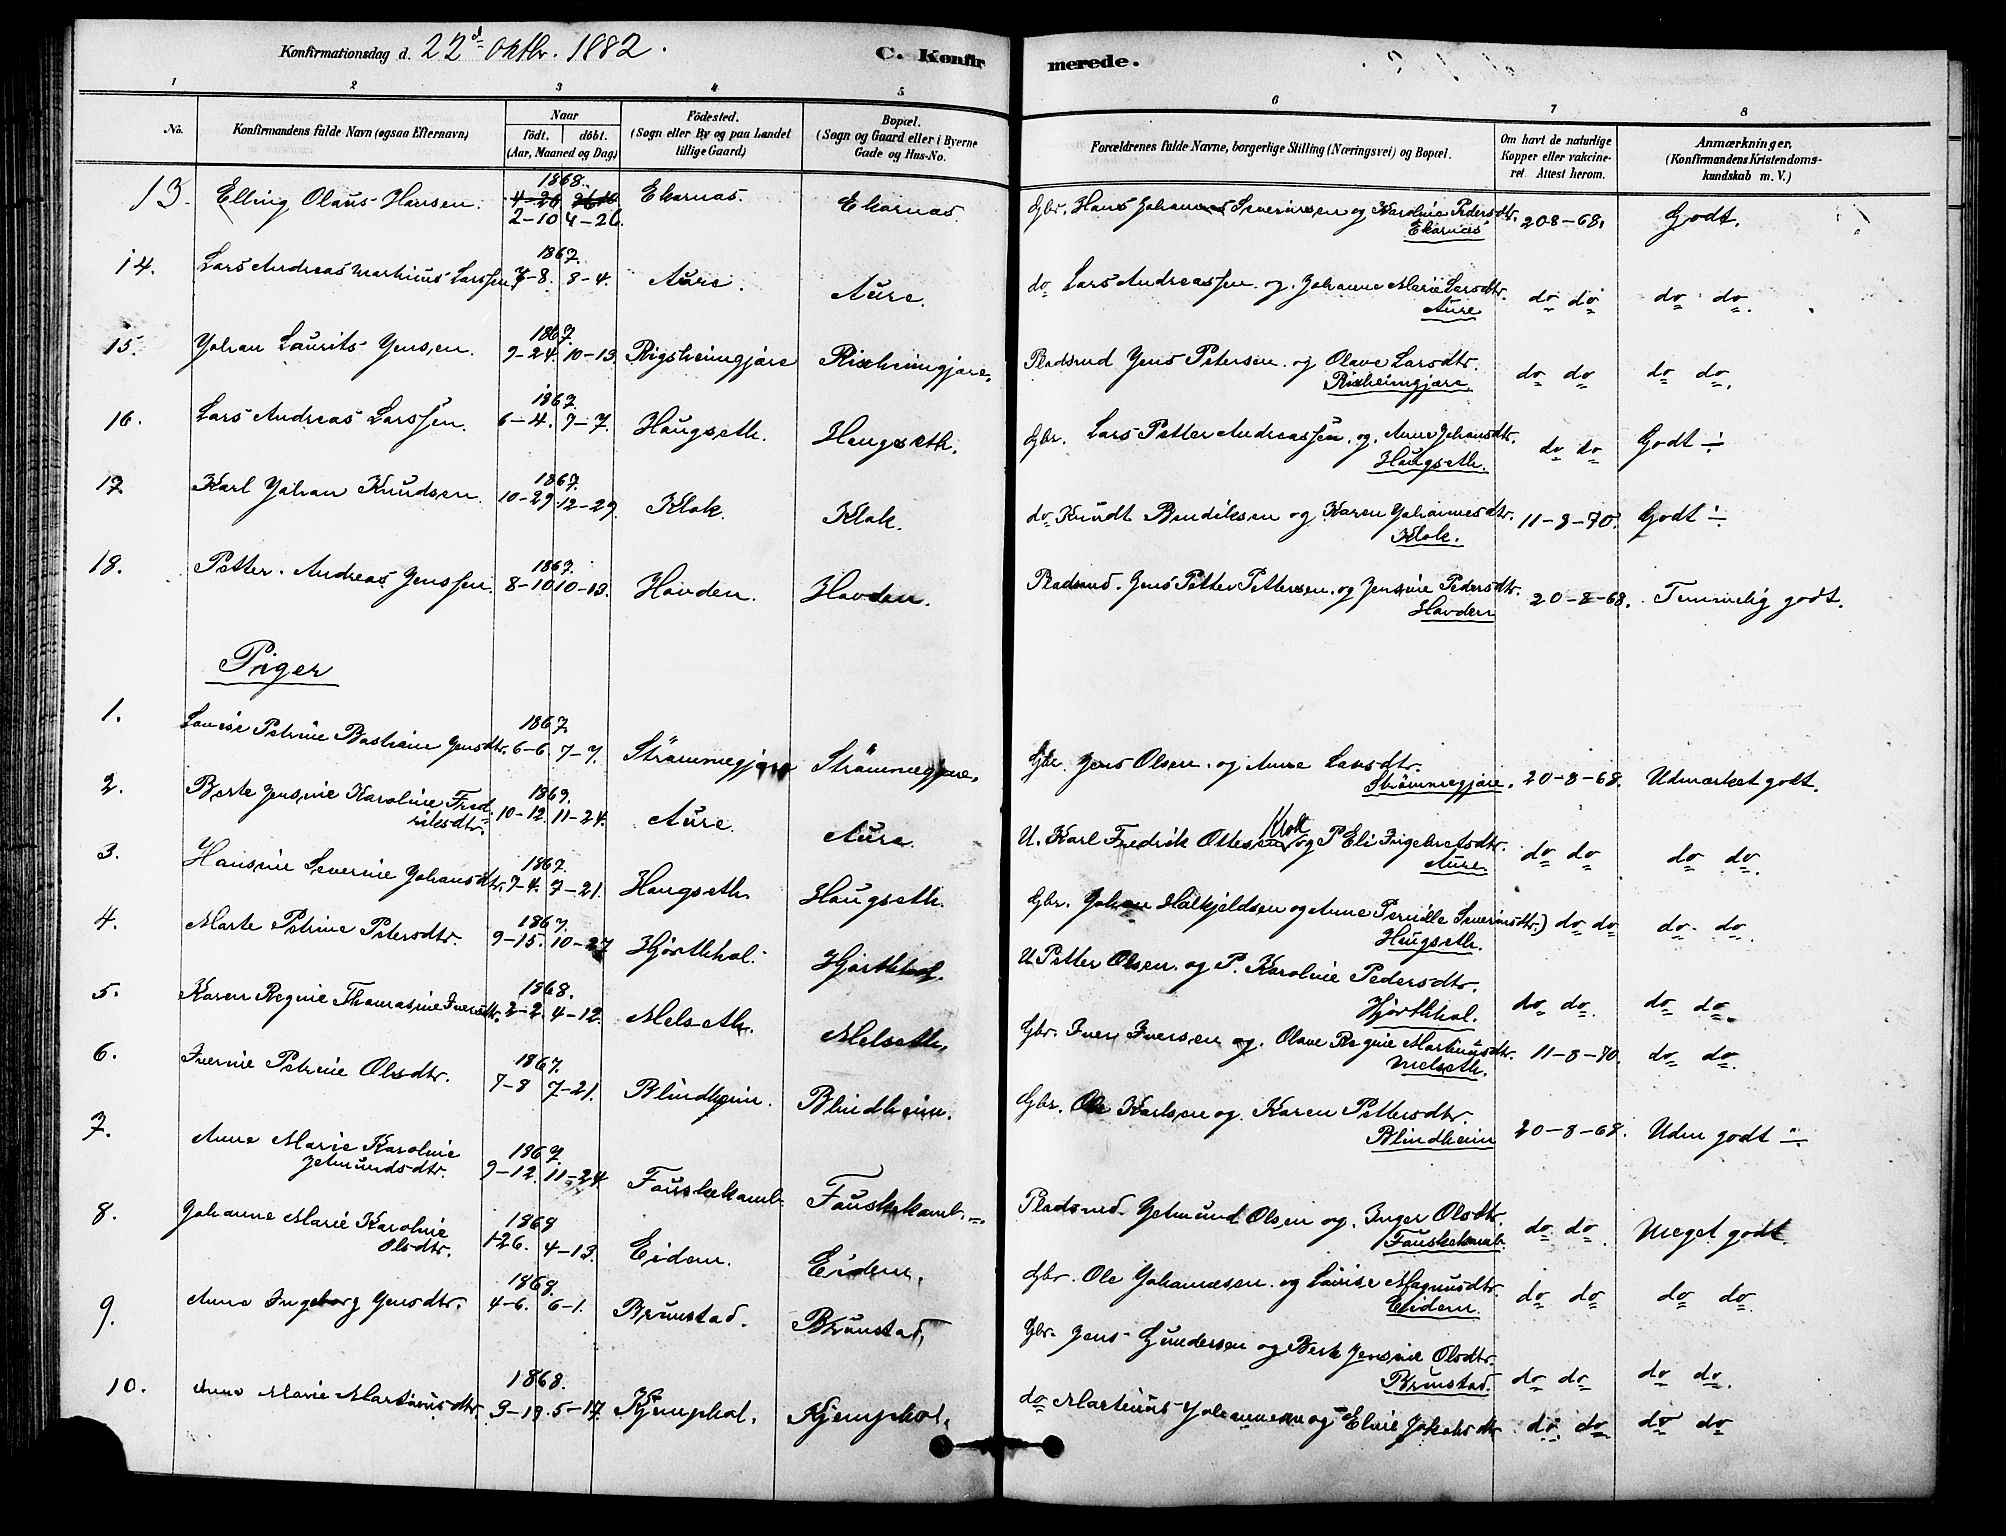 Konfirmationsdag d. 22de Oktbr. 1882.
C. Konfirmerede.
1 2 3 4 5 6 7 8
No.
Konfirmandens fulde Navn (ogsaa Efternavn)
Naar
födt. döbt.
(Aar, Maaned og Dag)
Födested.
(Sogn eller By og paa Landet
tillige Gaard)
Bopæl.
(Sogn og Gaard eller i Byerne
Gade og Hus-No.
Forældrenes fulde Navne, borgerlige Stilling (Næringsvei) og Bopæl.
Om havt de naturlige
Kopper eller vakcine-
ret. Attest herom.
Anmærkninger.
(Konfirmandens Kristendoms-
kundskab m. V.)
1868.
13. Elling Olaus Hansen. 2-10 4-26. Ekornæs. Ekornæs. Gbr. Hans Johannes Severinsen og Karoline Pedersdtr. 20-8-68. Godt.
Ekornæs
1867.
14. Lars Andreas Martinus Larssen 7-8. 8-4. Aure. Aure. do Lars Andreassen og Johanne Marie Larsdtr. do do do do.
Aure
1867.
15. Johan Laurits Jensen. 9-24. 10-13. Rigsheimgjære Rixheimgjære. Pladsmd Jens Petersen og Olave Larsdtr. do do do do.
Rixheimgjære
1867.
16. Lars Andreas Larssen. 6-4. 7-7. Haugseth. Haugseth. Gbr. Lars Petter Andreassen og Anne Johansdtr. do do Godt ÷
Haugseth.
1867.
17 Karl Johan Knudsen. 10-29. 12-29. Klok. Klok. do Knudt Bendiksen og Karen Johannesdtr. 11-8-70. Godt ÷
Klok.
1867.
18. Petter Andreas Jenssen. 8-10 10-13. Havden. Havden. Pladsmd. Jens Petter Pettersen og Jensine Pedersdtr. 20-8-68. Temmelig godt.
Havden
Piger
1867
1. Lovise Petrine Bastiane Jensdtr. 6-6. 7-7. Strömmegjære Strömmegjære. Gbr. Jens Olsen og Anne Larsdtr. 20-8-68. Udmærket godt.
Strömmegjære.
1867.
2. Berte Jensine Karoline Fred- 10-12. 11-24. Aure. Aure. U. Karl Fredrik Ottesen Krok og P. Eli Ingebretsdtr. do do do do.
riksdtr. Aure
1867.
3. Hansine Severine Johansdtr. 7-4. 7-21. Haugseth. Haugseth. Gbr. Johan Halkjeldsen og Anne Pernille Severinsdtr.) do do do do.
Haugseth.
1867.
4. Marte Petrine Petersdtr. 9-15. 10-27 Hjorthhol. Hjorthhol. U Petter Olsen og P. Karoline Pedersdtr. do do. do do.
Hjorthhol.
1868.
5. Karen Regine Thomasine Iversdtr. 2-2. 4-12. Melseth. Melseth. Gbr. Iver Iversen og Olave Regine Martinusdtr. 11-8-70. do do.
Melseth.
1867.
6. Iverine Petrine Olsdtr. 7-8 7-21. Blindheim. Blindheim. Gbr. Ole Karlsen og Karen Pettersdtr. 20-8-68. Udm godt ÷
Blindheim
1867.
7. Anne Marie Karoline 9-12. 11-24. Fauskekamb Fauskekamb. Pladsmd. Jetmund Olsen og Inger Olsdtr. do do. Meget godt.
Jetmundsdtr. Fauskekamb.
1868
8. Johanne Marie Karoline 1-26. 4-13. Eidem. Eidem. Gbr. Ole Johannesen og Lovise Magnusdtr. do do do do.
Olsdtr. Eidem.
1868.
9. Anne Ingeborg Jensdtr. 4-6. 6-1. Brunstad. Brunstad. Gbr. Jens Gundersen og Berte Jensine Olsdtr. do do do do.
Brunstad.
1868.
10. Anne Marie Martinusdtr. 3-19. 5-17. Kjemphol. Kjemphol. do Martinus Johannesen og Eline Jakobsdtr do do do do